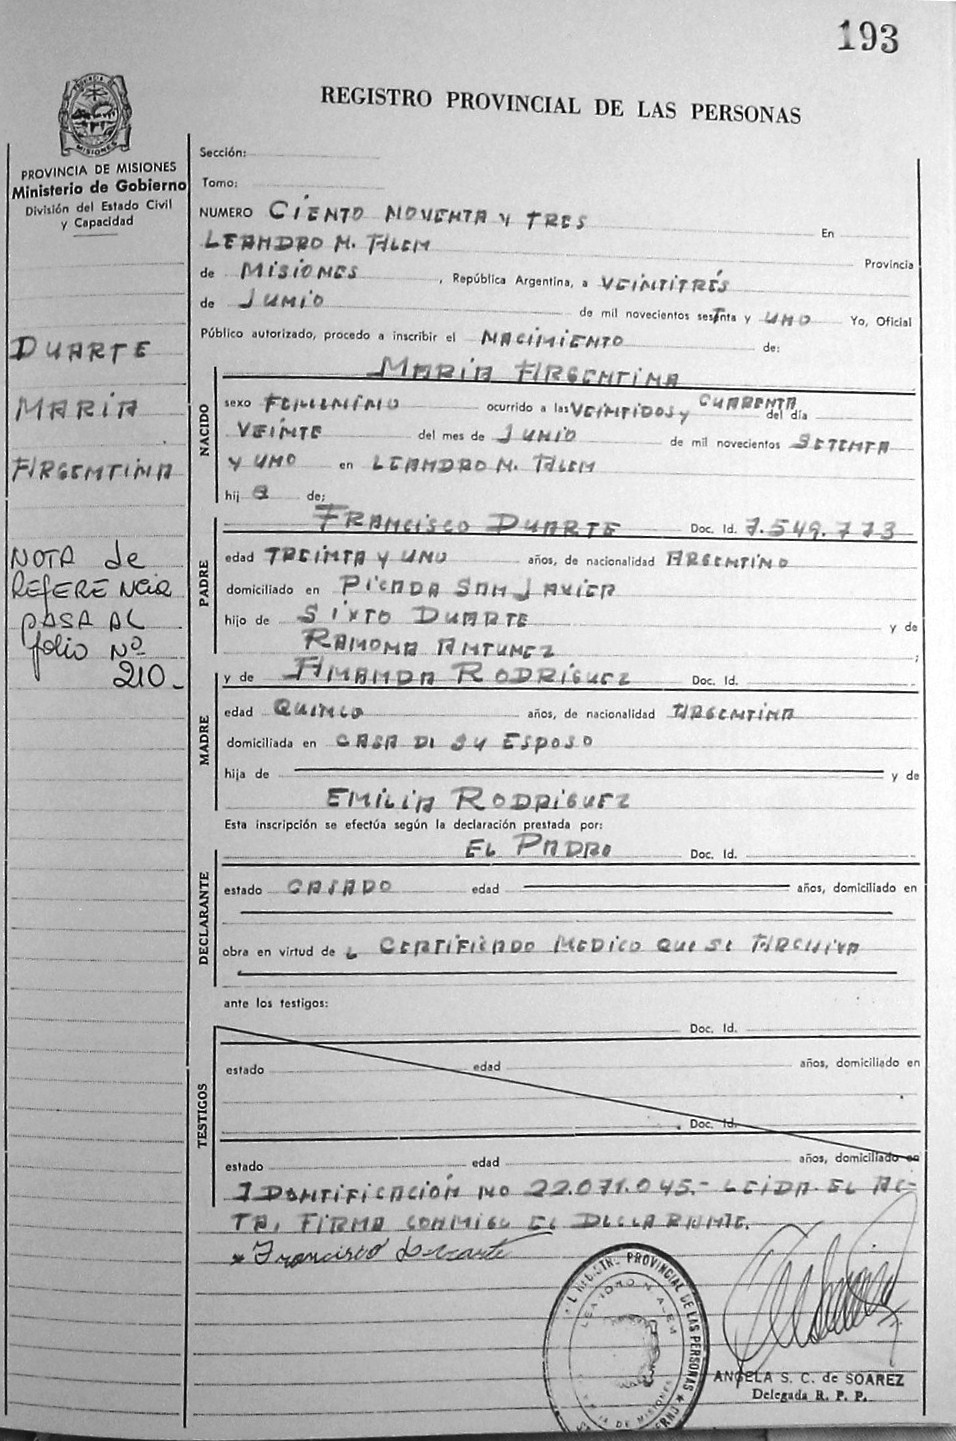 193
REGISTRO PROVINCIAL DE LAS PERSONAS
PROVINCIA DE MISIONES
PROVINCIA DE MISIONES
Ministerio de Gobierno
División del Estado Civil
y Capacidad
DUARTE
MARIA
ARGENTINA
NOTA de
REFERENCIA
PASA AL
folio Nº
210_
Sección:
Tomo:
NUMERO CIENTO NOVENTA Y TRES En
LEANDRO N. ALEM Provincia
de MISIONES , República Argentina, a VEINTITRÉS
de JUNIO de mil novecientos setenta y UNO Yo, Oficial
Público autorizado, procedo a inscribir el NACIMIENTO de:
NACIDO
MARIA ARGENTINA
sexo FEMENINO ocurrido a las VEINTIDOS y CUARENTA del día
VEINTE del mes de JUNIO de mil novecientos SETENTA
Y UNO en LEANDRO N. ALEM
hij a de:
PADRE
FRANCISCO DUARTE Doc. Id. 7.549.773
edad TREINTA Y UNO años, de nacionalidad ARGENTINO
domiciliado en PICADA SAN JAVIER
hijo de SIXTO DUARTE y de
RAMONA ANTUNEZ ;
MADRE
y de AMANDA RODRÍGUEZ Doc. Id.
edad QUINCE años, de nacionalidad ARGENTINA
domiciliada en CASA DE SU ESPOSO
hija de y de
EMILIA RODRIGUEZ
Esta inscripción se efectúa según la declaración prestada por:
DECLARANTE
EL PADRE Doc. Id.
estado CASADO edad años, domiciliado en
obra en virtud de CERTIFICADO MEDICO QUE SE ARCHIVA
ante los testigos:
TESTIGOS
Doc. Id.
estado edad años, domiciliado en
Doc. Id.
estado edad años, domiciliado en
IDENTIFICACIÓN NO 22.071.045.- LEIDA EL AC-
TA, FIRMA CONMIGO EL DECLARANTE.
Francisco Duarte
REGISTRO PROVINCIAL DE LAS PERSONAS
LEANDRO N. ALEM
DE MISIONES
ANGELA S. C. de SOAREZ
Delegada R. P. P.